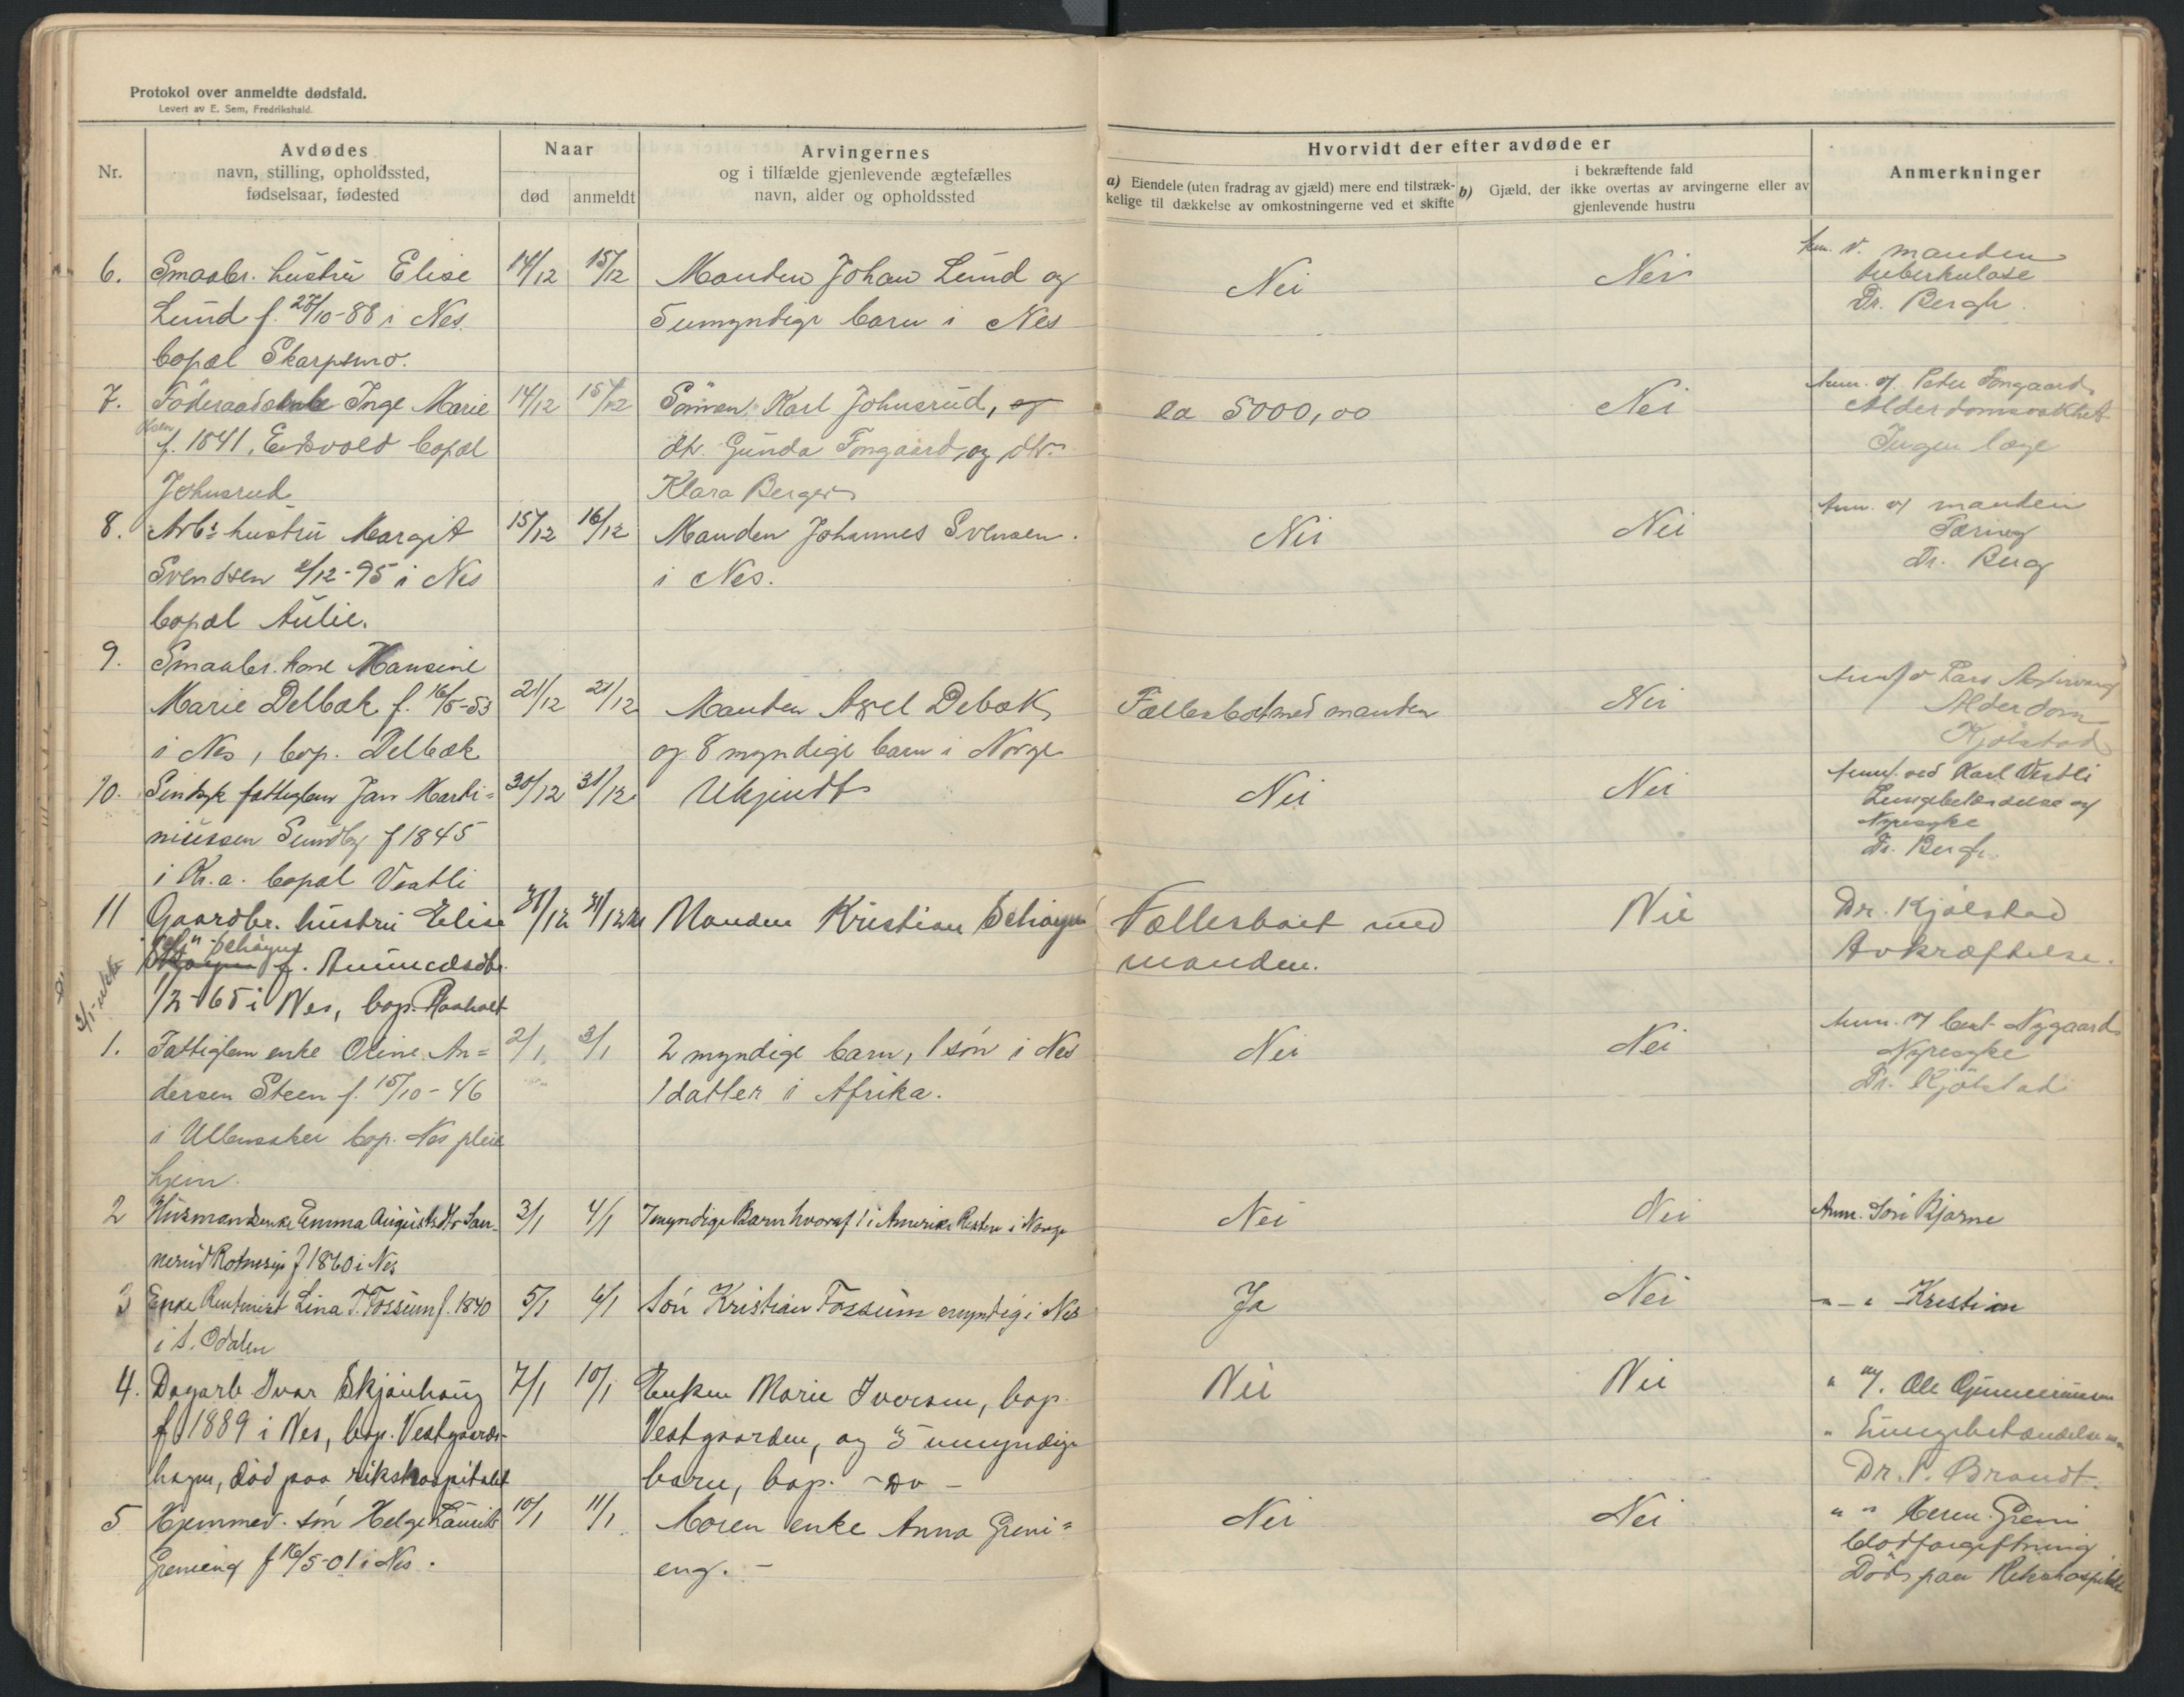 Protokol over anmeldte dødsfald.
Levert av E. Sem, Fredrikshald.
Nr.
Avdødes
navn, stilling, opholdssted,
fødselsaar, fødested
Naar
død
anmeldt
Arvingernes
og i tilfælde gjenlevende ægtefælles
navn, alder og opholdssted
Hvorvidt der efter avdøde er
a) Eiendele (uten fradrag av gjæld) mere end tilstræk-
kelige til dækkelse av omkostningerne ved et skifte
i bekræftende fald
b) Gjæld, der ikke overtas av arvingerne eller av
gjenlevende hustru
Anmerkninger
6.
Smaabr. hustru Elise
Lund f. 27/10-88 i Nes.
bopæl Skarpsmo.
14/12
15/12
Manden Johan Lund og
5 umyndige barn i Nes
Nei
Nei
Anm. v. manden
tuberkulose
Dr. Bergh.
7.
Föderaads Inge Marie
Olsen
f. 1841, Eidsvold bopæl
Johnsrud
14/12
15/12
Sønnen Karl Johnsrud, og
dtr. Gunda Fongaard, og dtr.
Klara Berger
ca 5000,00
Nei
Anm. af Peter Fongaard
Alderdomssvakhet
Ingen læge
8.
Arb: hustru Margit
Svendsen 2/12-95 i Nes
bopæl Aulie.
15/12
16/12
Manden Johannes Svensen.
i Nes.
Nei
Nei
Anm. af manden
Tæring
Dr. Berg
9.
Smaabr. kone Hansine
Marie Delbæk f. 16/5-53
i Nes, bop. Delbæk
21/12
21/12
Manden Axel Debæk
og 8 myndige barn i Norge
Fællesboet med manden
Nei
Lars
Alderdom
Kjölstad
10.
Sindsyk fattiglem Jan Marti=
niussen Sundby f 1845
i Kr.a. bopæl Vestli
30/12
31/12
Ukjendt
Nei
Nei
Anm. ved Karl Vestli
Lungebetændelse og
Nyresyke
Dr. Bergh.
11
Gaardbr. hustru Elise
Schøyen
f. Amundsdtr.
1/2-65 i Nes, bop. Raaholt
31/12
31/12
Manden Kristian Schøyen
Fællesboet med
manden.
Nei
Dr. Kjølstad
Avkræftelse.
1.
Fattiglem enke Oline An=
dersen Steen f. 15/10-46
i Ullensaker bop. Nes pleie
hjem.
2/1
3/1
2 myndige barn, 1 sön i Nes
1 datter i Afrika.
Nei
Nei
Anm. af Nygaard
Nyresyke
Dr. Kjölstad
2
Husmandsenke Emma Augustsdtr San-
nerud f 1860 i Nes
3/1
4/1
7 myndige Barn hvoraf 1 i Amerika Resten i Norge
Nei
Nei
Anm. Søn Bjarne
3
Enke Lina T. Fossum f. 1840
i S. Odalen
5/1
6/1
Søn Kristian Fossum myndig i Nes
Ja
Nei
" - " Kristian
4.
Dagarb Ivar Skjønhaug
f 1889 i Nes, bop. Vestgaards-
hagen, död paa rikshospitalet
7/1
10/1
Enken Marie Iversen, bop.
Vestgaarden, og 5 umyndige
barn, bop. -do-
Nei
Nei
" af. Ole
" Lungebetændelse
Dr. P. Brandt.
5
Hjemmev. søn Helge Laurits
Grenieng f 16/5-01 i Nes.
10/1
11/1
Moren enke Anna Greni=
eng. -
Nei
Nei
" " Moren Greni
blodforgiftning
Död paa Rikshospitalet